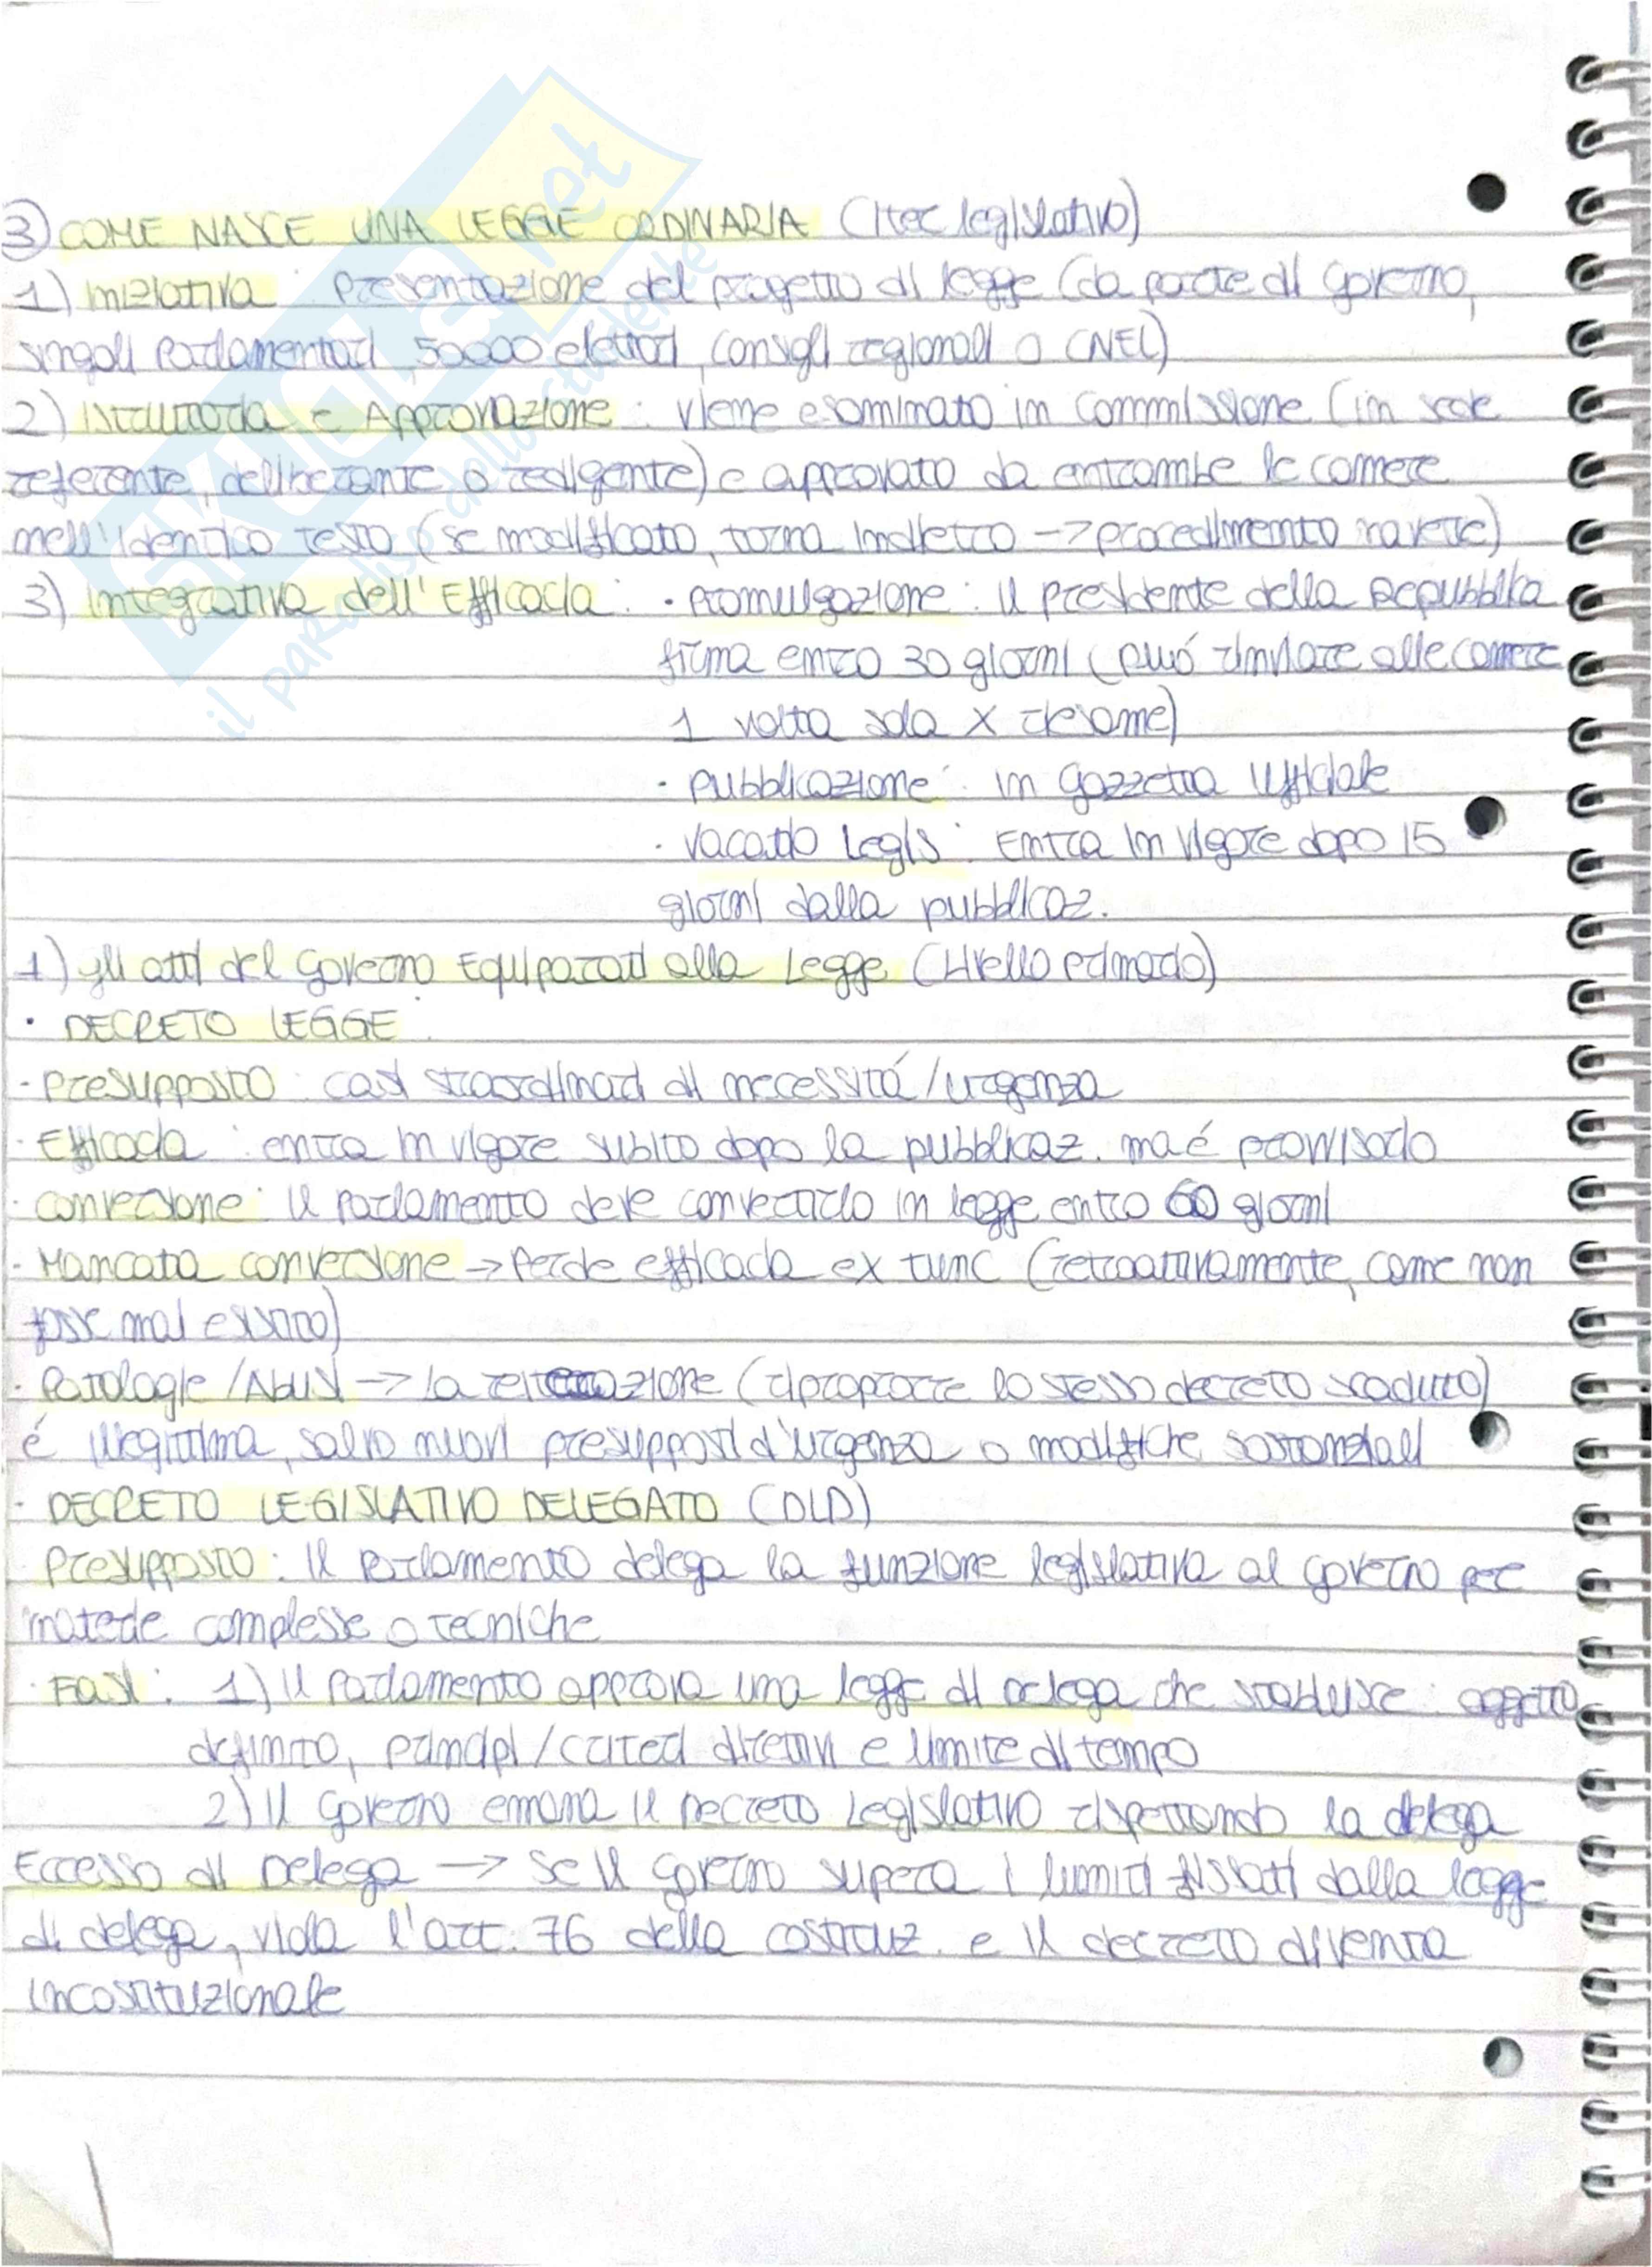 ③ COME NASCE UNA LEGGE ORDINARIA (Iter legislativo)
1) Iniziativa: Presentazione del progetto di legge (da parte di Governo,
singoli Parlamentari, 50000 elettori, consigli regionali o CNEL)
2) Istruttoria e Approvazione: viene esaminato in commissione (in sede
referente, deliberante o redigente) e approvato da entrambe le camere
nell'identico testo (se modificato, torna indietro -> procedimento navette)
3) Integrativa dell'Efficacia: • Promulgazione: il presidente della Repubblica
firma entro 30 giorni (può rinviare alle camere
1 volta sola x riesame)
• Pubblicazione: in Gazzetta Ufficiale
• Vacatio Legis: Entra in vigore dopo 15
giorni dalla pubblicaz.
1) gli atti del Governo Equiparati alla Legge (Livello primario)
• DECRETO LEGGE:
- Presupposto: casi straordinari di necessitá/urgenza
· Efficacia: entra in vigore subito dopo la pubblicaz. ma é provvisorio
· Conversione: il Parlamento deve convertirlo in legge entro 60 giorni
· Mancata conversione -> Perde efficacia ex tunc (retroattivamente, come non
fosse mai esistito)
· Patologie/Abusi -> la reiterazione (riproporre lo stesso decreto scaduto)
é illegittima, salvo nuovi presupposti d'urgenza o modifiche sostanziali
· DECRETO LEGISLATIVO DELEGATO (DLD)
Presupposto: Il Parlamento delega la funzione legislativa al governo per
materie complesse o tecniche
· Fasi: 1) Il Parlamento approva una legge di delega che stabilisce: oggetto
definito, principi/criteri direttivi e limite di tempo
2) Il Governo emana il Decreto Legislativo rispettando la delega
Eccesso di Delega -> Se il governo supera i limiti fissati dalla legge
di delega, viola l'art. 76 della costituz. e il decreto diventa
incostituzionale
SKUOLA.net
il paradiso dello studente